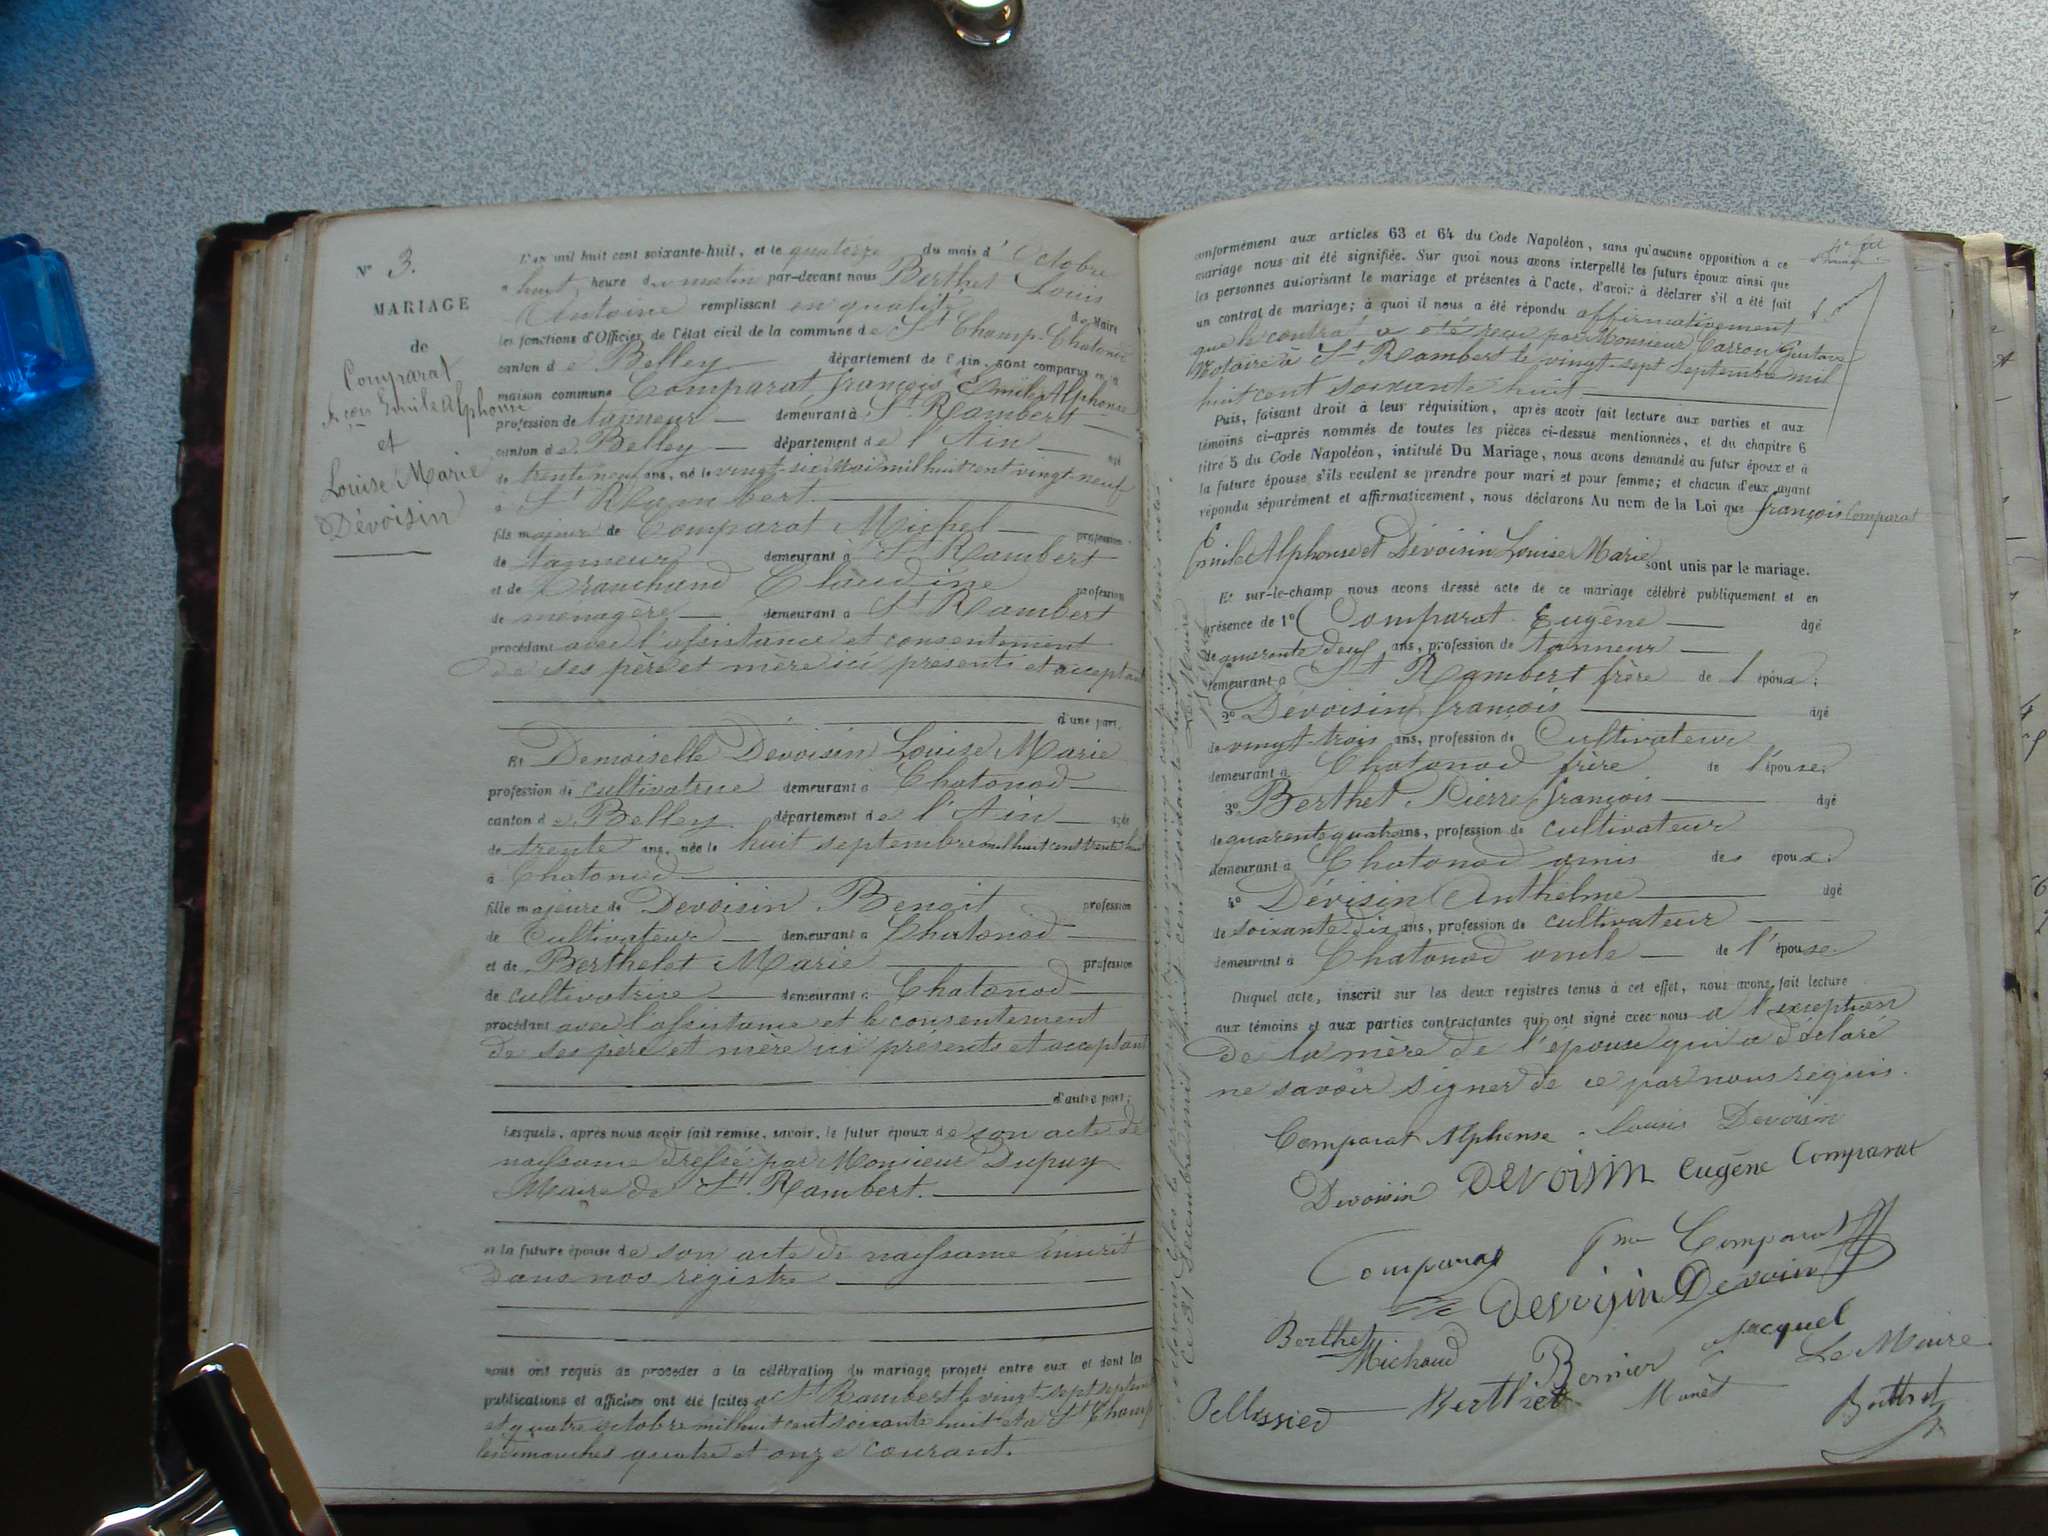 N° 3.
MARIAGE
de
Comparat
Emile Alphonse
et
Louise Marie
Dévoisin
L'an mil huit cent soixante-huit, et le quatorze du mois d'Octobre
à huit heure du matin par-devant nous Berthet Louis
Antoine remplissant en qualité de Maire
les fonctions d'Officier de l'état civil de la commune de St Champ-Chatonod
canton de Belley département de l'Ain, sont comparus en la
maison commune Comparat françois Emile Alphonse
profession de tanneur demeurant à St Rambert
canton de Belley département de l'Ain âgé
de trente neuf ans, né le vingt-six Mai mil huit cent vingt-neuf
à St Rambert
fils majeur de Comparat Michel profession
de tanneur demeurant à St Rambert
et de Tranchand Claudine profession
de ménagère demeurant à St Rambert
procédant avec l'assistance et consentement
de ses père et mère ici présents et acceptant
d'une part,
Et Demoiselle Dévoisin Louise Marie
profession de cultivatrice demeurant à Chatonod
canton de Belley département de l'Ain âgée
de trente ans, née le huit septembre mil huit cent trente huit
à Chatonod
fille majeure de Devoisin Benoit profession
de Cultivateur demeurant à Chatonod
et de Berthelet Marie profession
de cultivatrice demeurant à Chatonod
procédant avec l'assistance et le consentement
de ses père et mère ici présents et acceptant
d'autre part;
Lesquels, après nous avoir fait remise, savoir, le futur époux de son acte de
naissance dressé par Monsieur Dupuy
Maire de St Rambert.
et la future épouse de son acte de naissance inscrit
dans nos régistre
nous ont requis de procéder à la célébration du mariage projeté entre eux et dont les
publications et affiches ont été faites à St Rambert le vingt-sept septembre
et quatre octobre mil huit cent soixante huit et à St Champ
les dimanches quatre et onze courant.
conformément aux articles 63 et 64 du Code Napoléon, sans qu'aucune opposition à ce
mariage nous ait été signifiée. Sur quoi nous avons interpellé les futurs époux ainsi que
les personnes autorisant le mariage et présentes à l'acte, d'avoir à déclarer s'il a été fait
un contrat de mariage; à quoi il nous a été répondu affirmativement
que le contrat a été reçu par Monsieur Carron Gustave
Notaire à St Rambert le vingt-sept Septembre mil
huit cent soixante huit
Puis, faisant droit à leur réquisition, après avoir fait lecture aux parties et aux
témoins ci-après nommés de toutes les pièces ci-dessus mentionnées, et du chapitre 6
titre 5 du Code Napoléon, intitulé Du Mariage, nous avons demandé au futur époux et à
la future épouse s'ils veulent se prendre pour mari et pour femme; et chacun d'eux ayant
répondu séparément et affirmativement, nous déclarons Au nom de la Loi que françois Comparat
Emile Alphonse et Dévoisin Louise Marie sont unis par le mariage.
Et sur-le-champ nous avons dressé acte de ce mariage célébré publiquement et en
présence de 1° Comparat Eugène âgé
de quarente deux ans, profession de tanneur
demeurant à St Rambert frère de l'époux;
2° Dévoisin françois âgé
de vingt-trois ans, profession de Cultivateur
demeurant à Chatonod frère de l'épouse;
3° Berthet Pierre françois âgé
de quarente quatre ans, profession de cultivateur
demeurant à Chatonod amis des époux;
4° Dévisin Anthelme âgé
de soixante dix ans, profession de cultivateur
demeurant à Chatonod oncle de l'épouse
Duquel acte, inscrit sur les deux registres tenus à cet effet, nous avons fait lecture
aux témoins et aux parties contractantes qui ont signé avec nous à l'exception
de la mère de l'épouse qui a déclaré
ne savoir signer de ce par nous réquis.
Comparat Alphonse Louise Devoisin
Devoisin DEVOISIN Eugène Comparat
Comparat Comparat
Devoisin Devoisin
Berthet Michaud Bernier Jacquet
Le Maire
Pellissier Berthet Monet Berthet